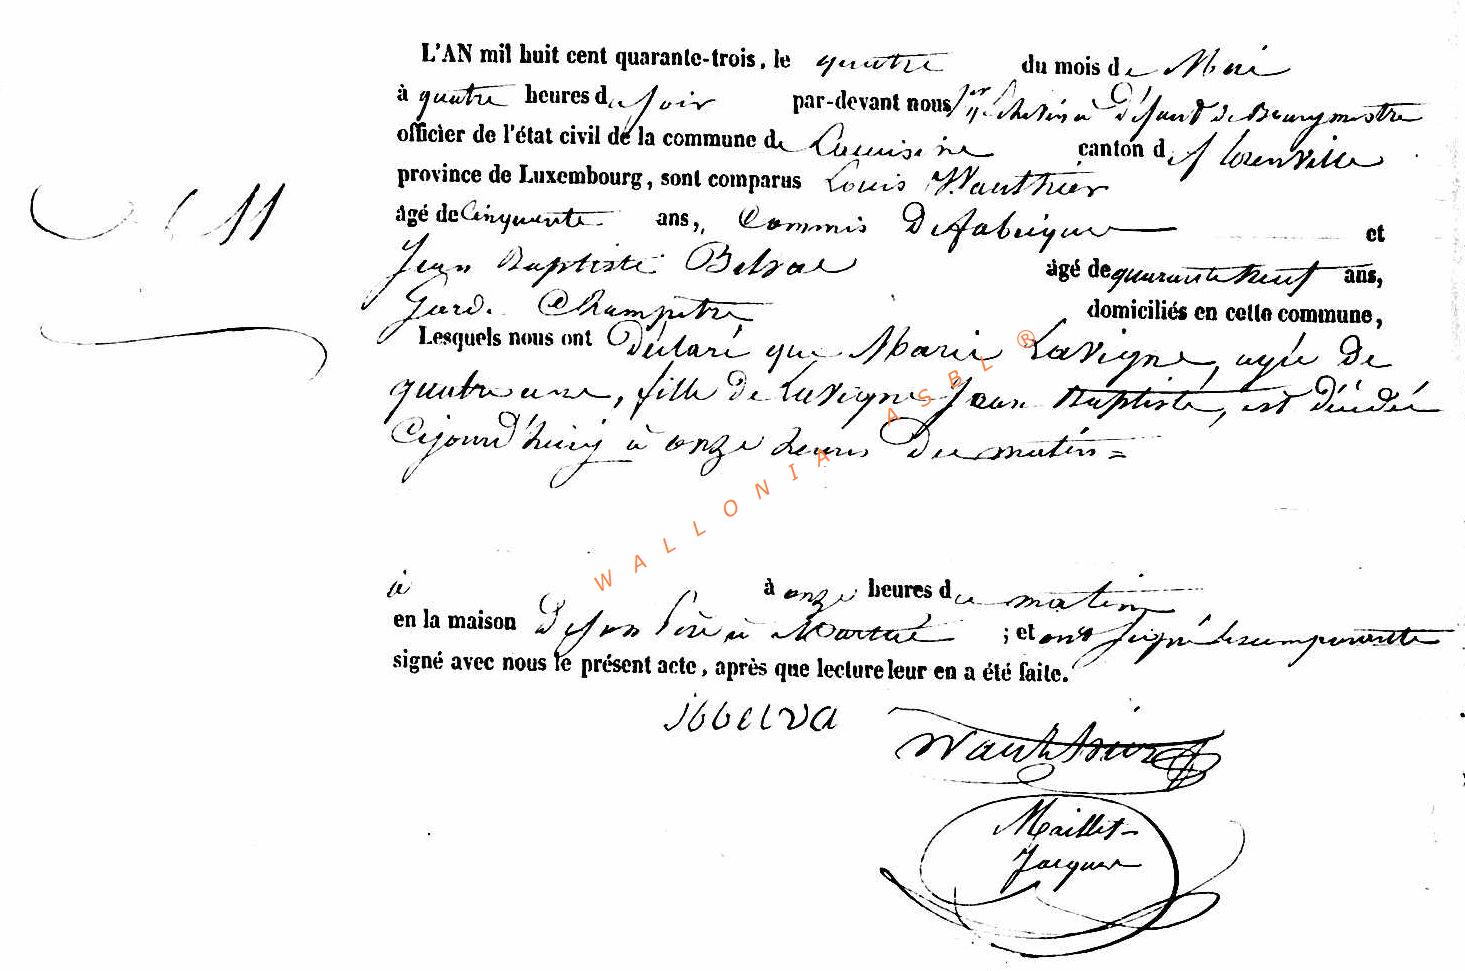 L'AN mil huit cent quarante-trois, le quatre du mois de Mai
à quatre heures du soir par-devant nous Echevin à Défaut de Bourgmestre
officier de l'état civil de la commune de Lacuisine canton de florenville
province de Luxembourg, sont comparus Louis Wauthier
N° 11
âgé de Cinquante ans, Commis De fabrique et
Jean Baptiste Belva âgé de quarante neuf ans,
Garde Champetre domiciliés en cette commune,
Lesquels nous ont Déclaré que Marie Lavigne, agée de
quatre ans, fille de Lavigne Jean Baptiste, est décédée
Cejourd'huiy à onze heures du matin =
à à onze heures du matin
en la maison De son Père à Martué ; et ont signé les comparants
signé avec nous le présent acte, après que lecture leur en a été faite.
jbbelva
Wauthier
Maillet
Jacques
WALLONIA ASBL ®